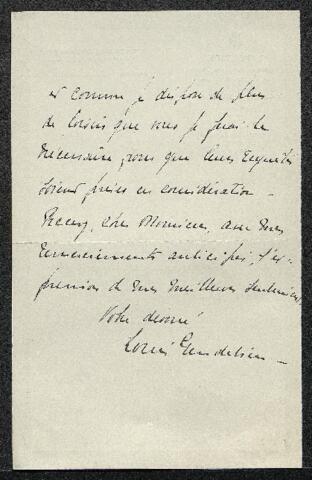 et comme je dispose de plus
de loisirs que vous je ferai le
nécessaire pour que leurs requêtes
soient prises en considération.
Recevez, cher Monsieur, avec mes
remerciements anticipés, l'ex-
pression de mes meilleurs sentiments,
Votre dévoué
Louis